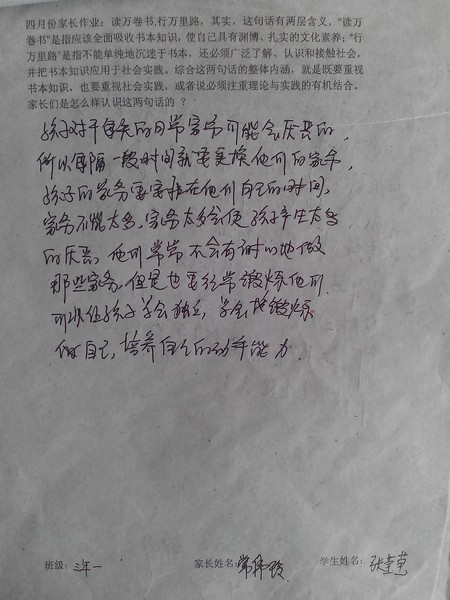 四月份家长作业：读万卷书,行万里路，其实，这句话有两层含义，"读万
卷书"是指应该全面吸收书本知识，使自己具有渊博、扎实的文化素养；"行
万里路"是指不能单纯地沉迷于书本，还必须广泛了解、认识和接触社会，
并把书本知识应用于社会实践。综合这两句话的整体内涵，就是既要重视
书本知识，也要重视社会实践，或者说必须注重理论与实践的有机结合。
家长们是怎么样认识这两句话的 ？
孩子对于每天的日常家务可能会厌烦的，
所以每隔一段时间就要更换他们的家务，
孩子的家务要安排在他们自己的时间，
家务不能太多，家务太多会使孩子产生太多
的厌烦，他们常常不会有耐心地做
那些家务，但是也要经常锻炼他们
可以让孩子学会独立，学会锻炼
自己，培养自己的动手能力.
班级：三年一
家长姓名：常
学生姓名：张